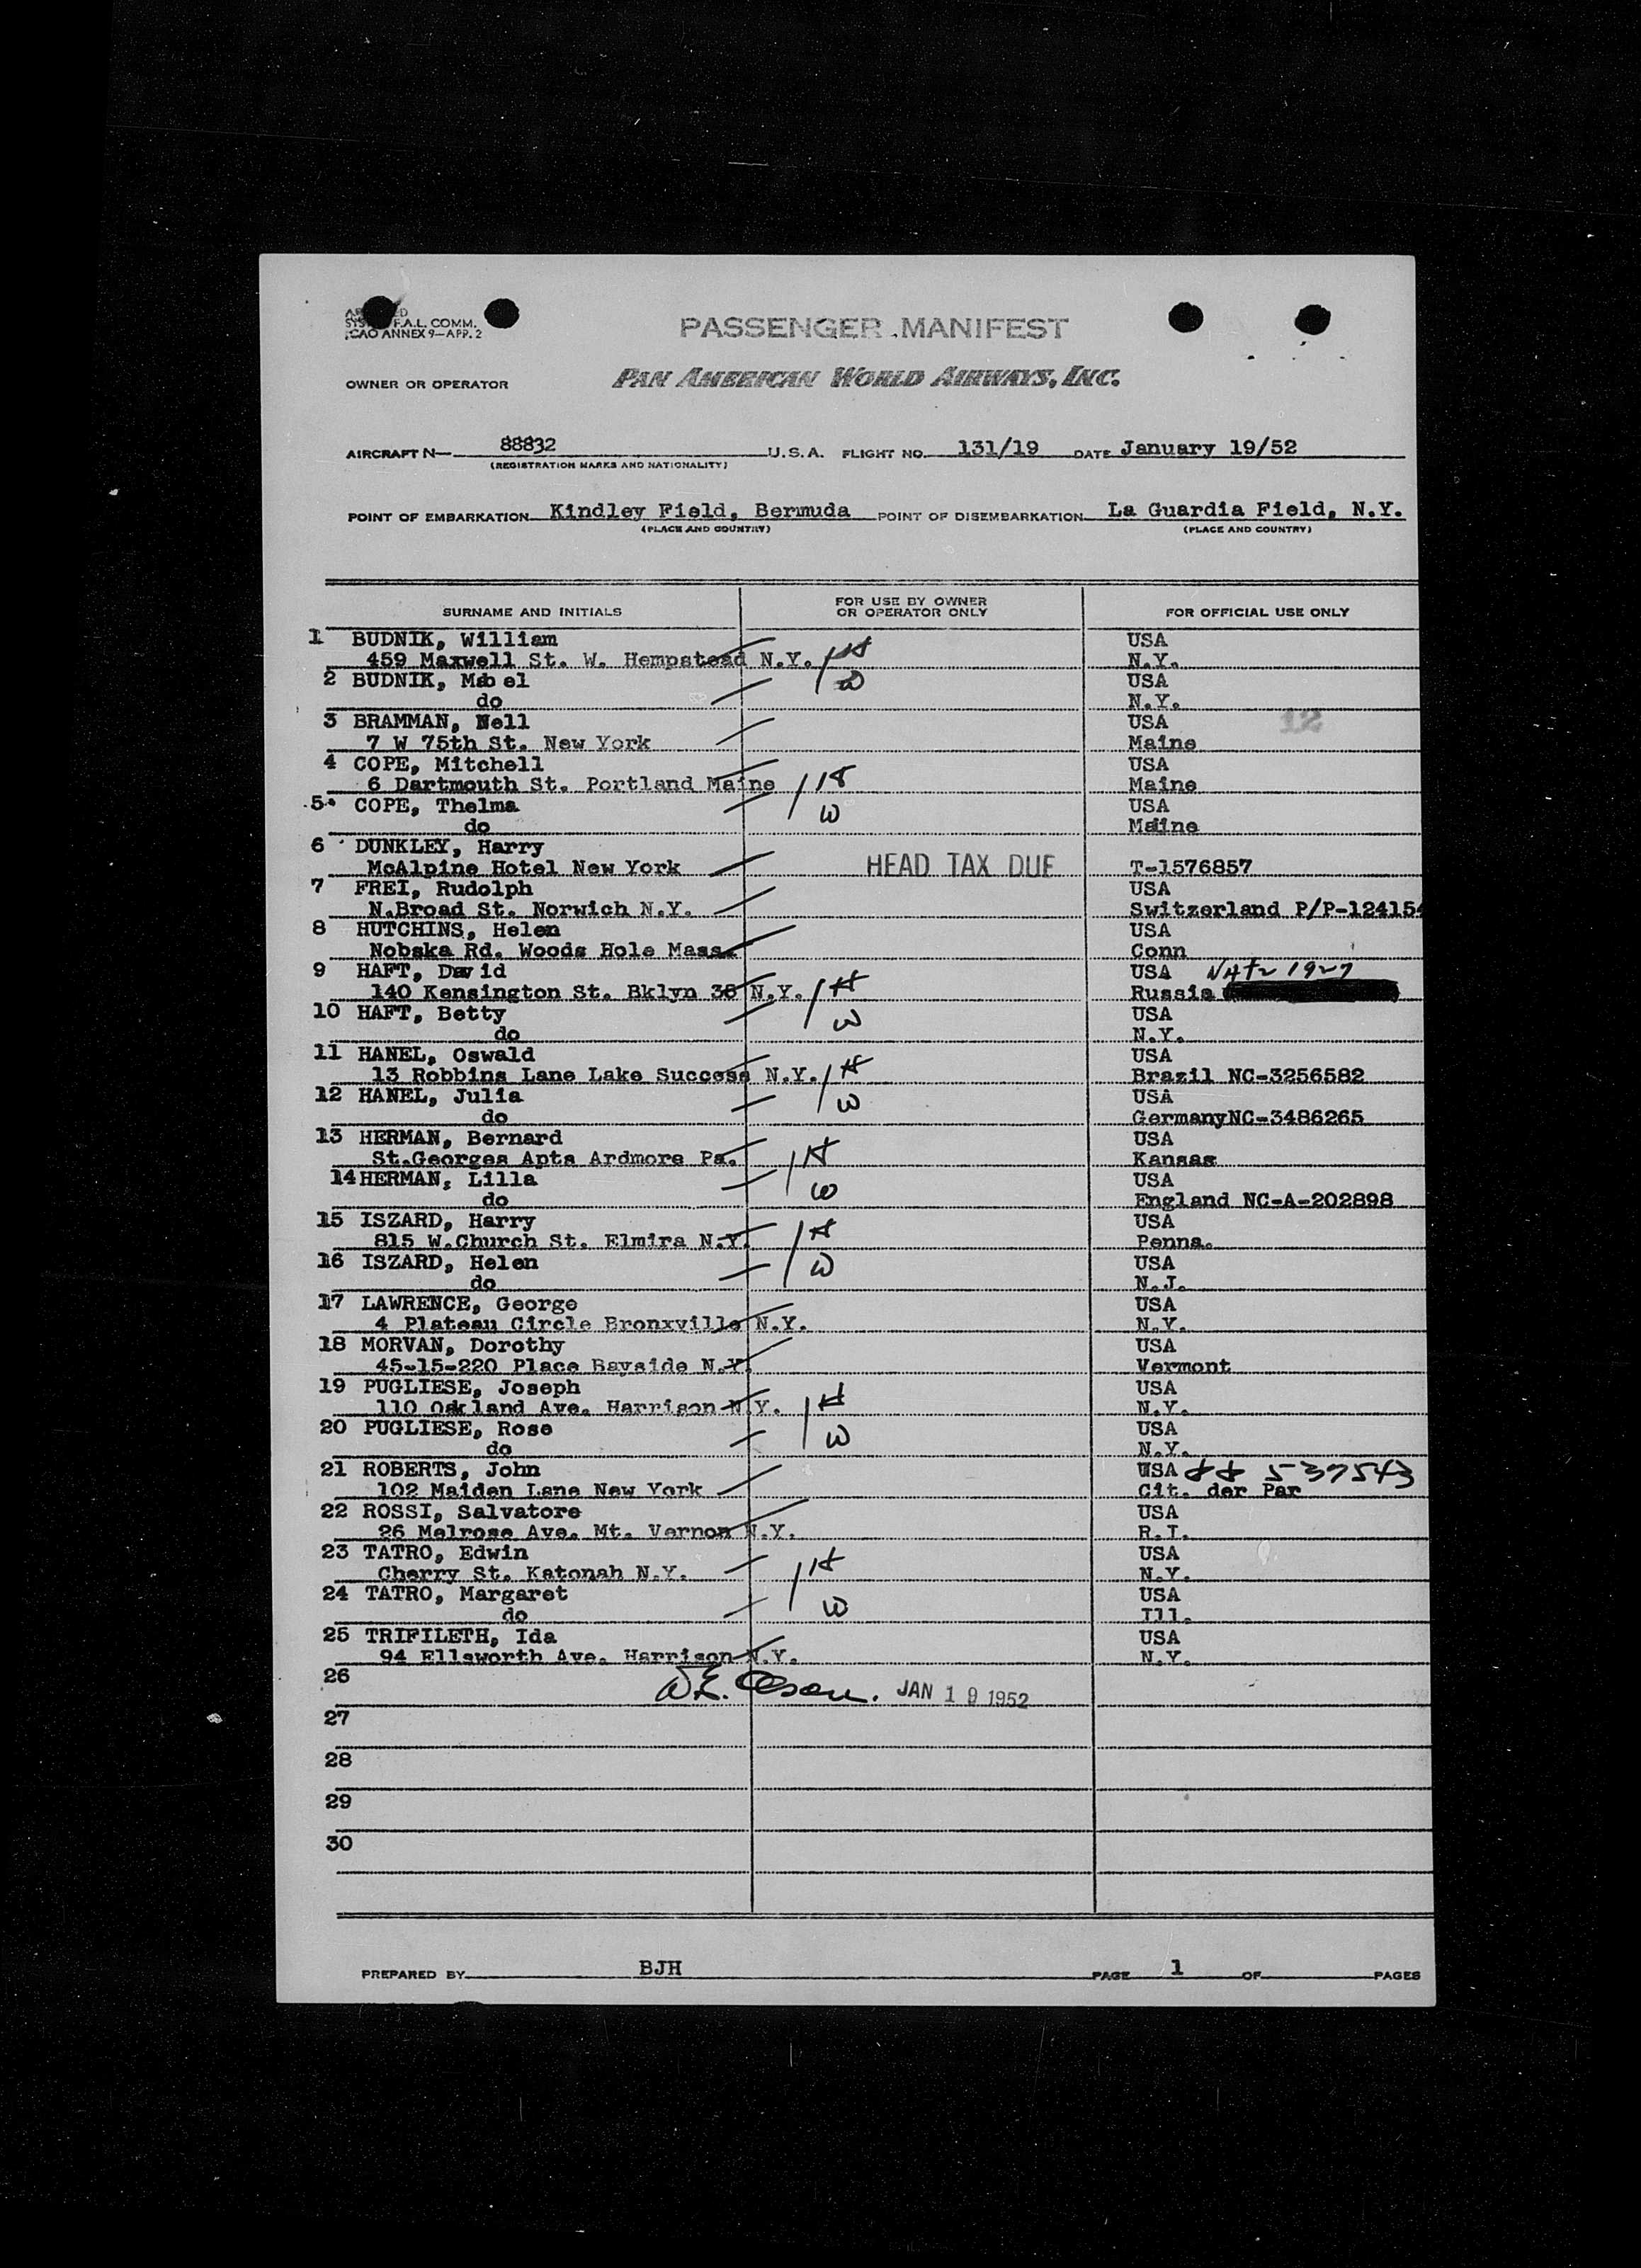 F.A.L. COMM.
ICAO ANNEX 9—APP. 2
PASSENGER MANIFEST
OWNER OR OPERATOR PAN AMERICAN WORLD AIRWAYS, INC.
AIRCRAFT N— 88832 U.S.A. FLIGHT NO. 131/19 DATE January 19/52
(REGISTRATION MARKS AND NATIONALITY)
POINT OF EMBARKATION Kindley Field, Bermuda POINT OF DISEMBARKATION La Guardia Field, N.Y.
(PLACE AND COUNTRY) (PLACE AND COUNTRY)
SURNAME AND INITIALS FOR USE BY OWNER OR OPERATOR ONLY FOR OFFICIAL USE ONLY
1 BUDNIK, William USA
459 Maxwell St. W. Hempstead N.Y. H N.Y.
2 BUDNIK, Mabel W USA
do N.Y.
3 BRAMMAN, Nell USA 12
7 W 75th St. New York Maine
4 COPE, Mitchell USA
6 Dartmouth St. Portland Maine H Maine
5 COPE, Thelma W USA
do Maine
6 DUNKLEY, Harry
McAlpine Hotel New York HEAD TAX DUE T-1576857
7 FREI, Rudolph USA
N.Broad St. Norwich N.Y. Switzerland P/P-124154
8 HUTCHINS, Helen USA
Nobska Rd. Woods Hole Mass. Conn
9 HAFT, David USA Natz 1927
140 Kensington St. Bklyn 38 N.Y. H Russia
10 HAFT, Betty W USA
do N.Y.
11 HANEL, Oswald USA
13 Robbins Lane Lake Success N.Y. H Brazil NC-3256582
12 HANEL, Julia W USA
do GermanyNC-3486265
13 HERMAN, Bernard USA
St.Georges Apts Ardmore Pa. H Kansas
14 HERMAN, Lilla W USA
do England NC-A-202898
15 ISZARD, Harry USA
815 W.Church St. Elmira N.Y. H Penna.
16 ISZARD, Helen W USA
do N.J.
17 LAWRENCE, George USA
4 Plateau Circle Bronxville N.Y. N.Y.
18 MORVAN, Dorothy USA
45-15-220 Place Bayside N.Y. Vermont
19 PUGLIESE, Joseph USA
110 Oakland Ave. Harrison N.Y. H N.Y.
20 PUGLIESE, Rose W USA
do N.Y.
21 ROBERTS, John USA 537543
102 Maiden Lane New York Cit. der Par
22 ROSSI, Salvatore USA
26 Melrose Ave. Mt. Vernon N.Y. R.I.
23 TATRO, Edwin USA
Cherry St. Katonah N.Y. H N.Y.
24 TATRO, Margaret W USA
do Ill.
25 TRIFILETH, Ida USA
94 Ellsworth Ave. Harrison N.Y. N.Y.
26 W.E. Olson. JAN 19 1952
27
28
29
30
PREPARED BY BJH PAGE 1 OF PAGES